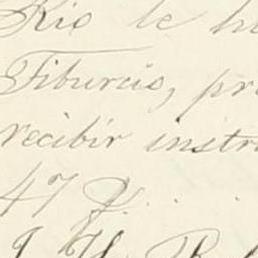 Rio le h
Tiburcio, pr
recibir instr
47 P...